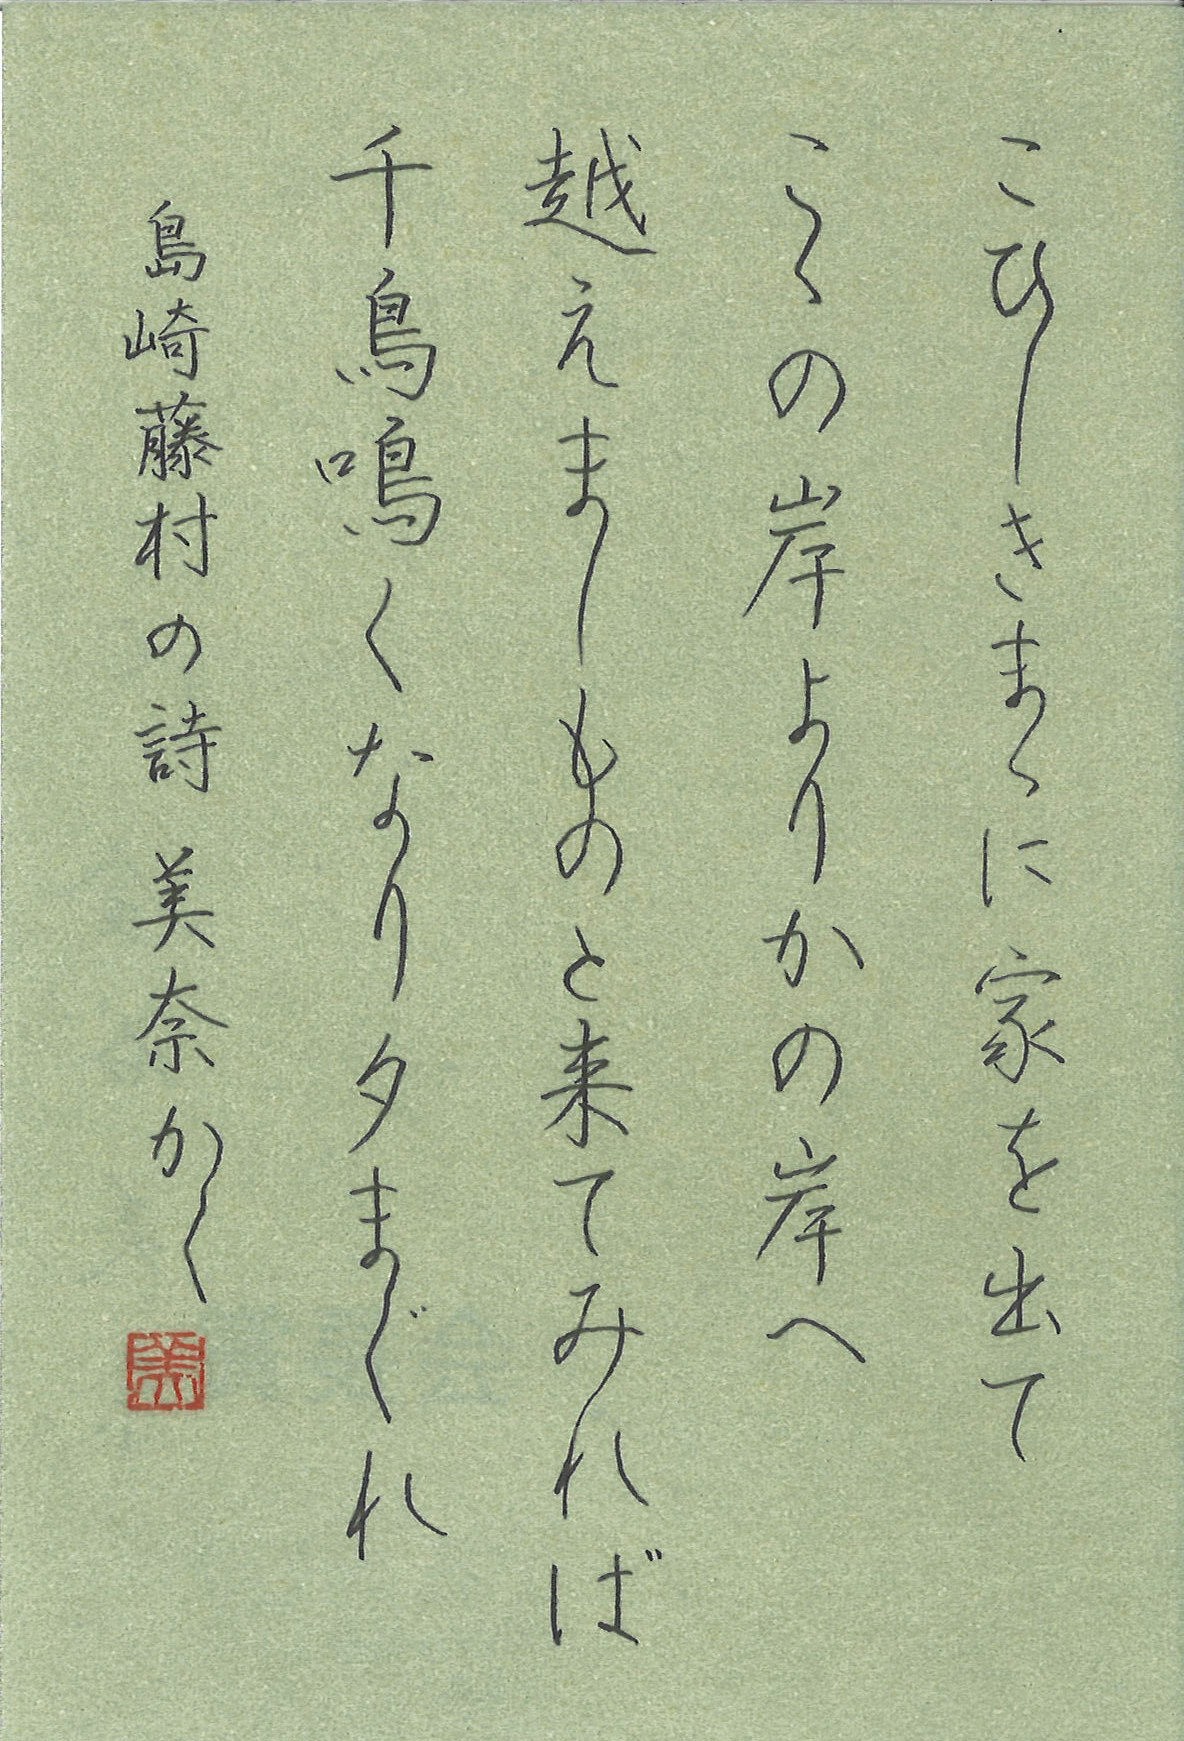 こひしきまゝに家を出て
こゝの岸よりかの岸へ
越えましものと来てみれば
千鳥鳴くなり夕まぐれ
島崎藤村の詩 美奈かく
美